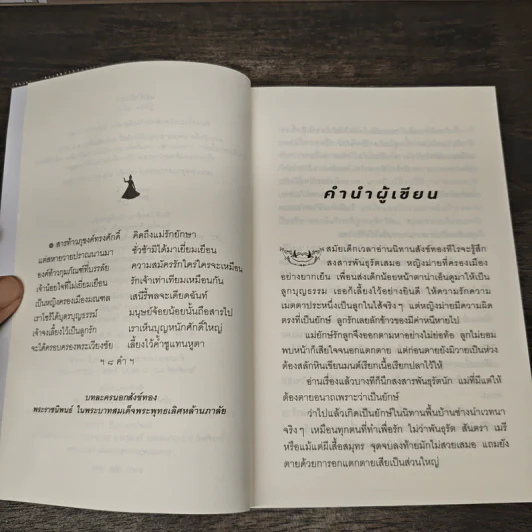 ๏ สารท้านภูชงค์ทรงศักดิ์ คิดถึงแม่รักยักษา
แต่สหายวายปราณนานมา ชั่วช้ามิได้มาเยี่ยมเยือน
องค์ท้าวกุมภัณฑ์ที่บรรลัย ความสมัครรักใคร่ใครจะเหมือน
เจ้าน้อยใจที่ไม่เยี่ยมเยือน รักเจ้าเท่าเทียมเหมือนกัน
เป็นหญิงครองเมืองมณฑล เสนีรี้พลจะเดียดฉันท์
เราไซร้ได้บุตรบุญธรรม์ มนุษย์จ้อยน้อยนั้นถือสารไป
เจ้าจงเลี้ยงไว้เป็นลูกรัก เราเห็นบุญหนักศักดิ์ใหญ่
จะได้ครอบครองพระเวียงชัย เลี้ยงไว้ค้ำชูแทนหูตา
ฯ ๘ คำ ฯ
บทละครนอกสังข์ทอง
พระราชนิพนธ์ ในพระบาทสมเด็จพระพุทธเลิศหล้านภาลัย
คำนำผู้เขียน
สมัยเด็กเวลาอ่านนิทานสังข์ทองทีไรจะรู้สึก
สงสารพันธุรัตเสมอ หญิงม่ายที่ครองเมือง
อย่างยากเย็น เพื่อนส่งเด็กน้อยหน้าตาน่าเอ็นดูมาให้เป็น
ลูกบุญธรรม เธอก็เลี้ยงไว้อย่างยินดี ให้ความรักความ
เมตตาประหนึ่งเป็นลูกในไส้จริงๆ แต่หญิงม่ายมีความผิด
ตรงที่เป็นยักษ์ ลูกรักเลยลักข้าวของมีค่าหนีหายไป
แม่ยักษ์รักลูกจึงออกตามหาอย่างไม่ย่อท้อ ลูกไม่ยอม
พบหน้าก็เสียใจจนอกแตกตาย แต่ก่อนตายยังมิวายเป็นห่วง
ต้องสลักหินเขียนมนต์เรียกเนื้อเรียกปลาไว้ให้
อ่านเรื่องแล้วบางทีก็นึกสงสารพันธุรัตนัก แม่ที่มีแต่ให้
ต้องตายอนาถเพราะว่าเป็นยักษ์
ว่าไปแล้วเกิดเป็นยักษ์ในนิทานพื้นบ้านช่างน่าเวทนา
จริงๆ เหมือนทุกคนที่ทำเพื่อรัก ไม่ว่าพันธุรัต สันตรา เมรี
หรือแม้แต่ผีเสื้อสมุทร จุดจบลงท้ายมักไม่สวยเสมอ แถมยัง
ตายด้วยการอกแตกตายเสียเป็นส่วนใหญ่